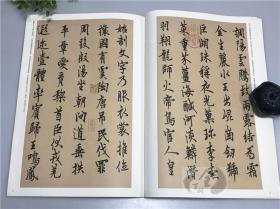 調陽雲騰致雨露結為霜
金生麗水玉出崑崗劍號
巨闕珠稱夜光菓珍李柰
菜重芥薑海鹹河淡鱗潛
羽翔龍師火帝鳥官人皇
始制文字乃服衣裳推位
讓國有虞陶唐弔民伐罪
周發殷湯坐朝問道垂拱
平章愛育黎首臣伏戎羌
遐邇壹體率賓歸王鳴鳳